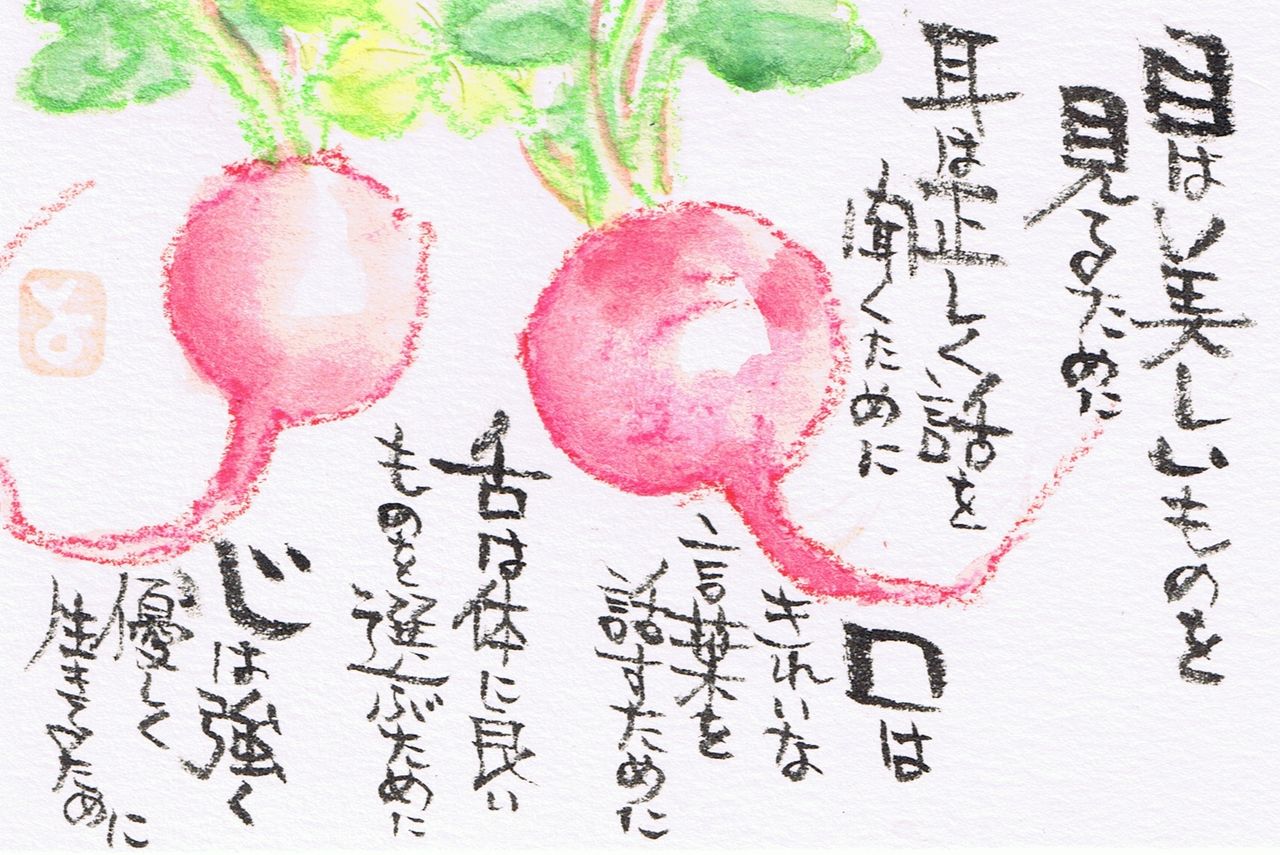 目は美しいものを
見るために
耳は正しく話を
聞くために
口は
きれいな
言葉を
話すために
舌は体に良い
ものを選ぶために
心は強く
優しく
生きるために
と